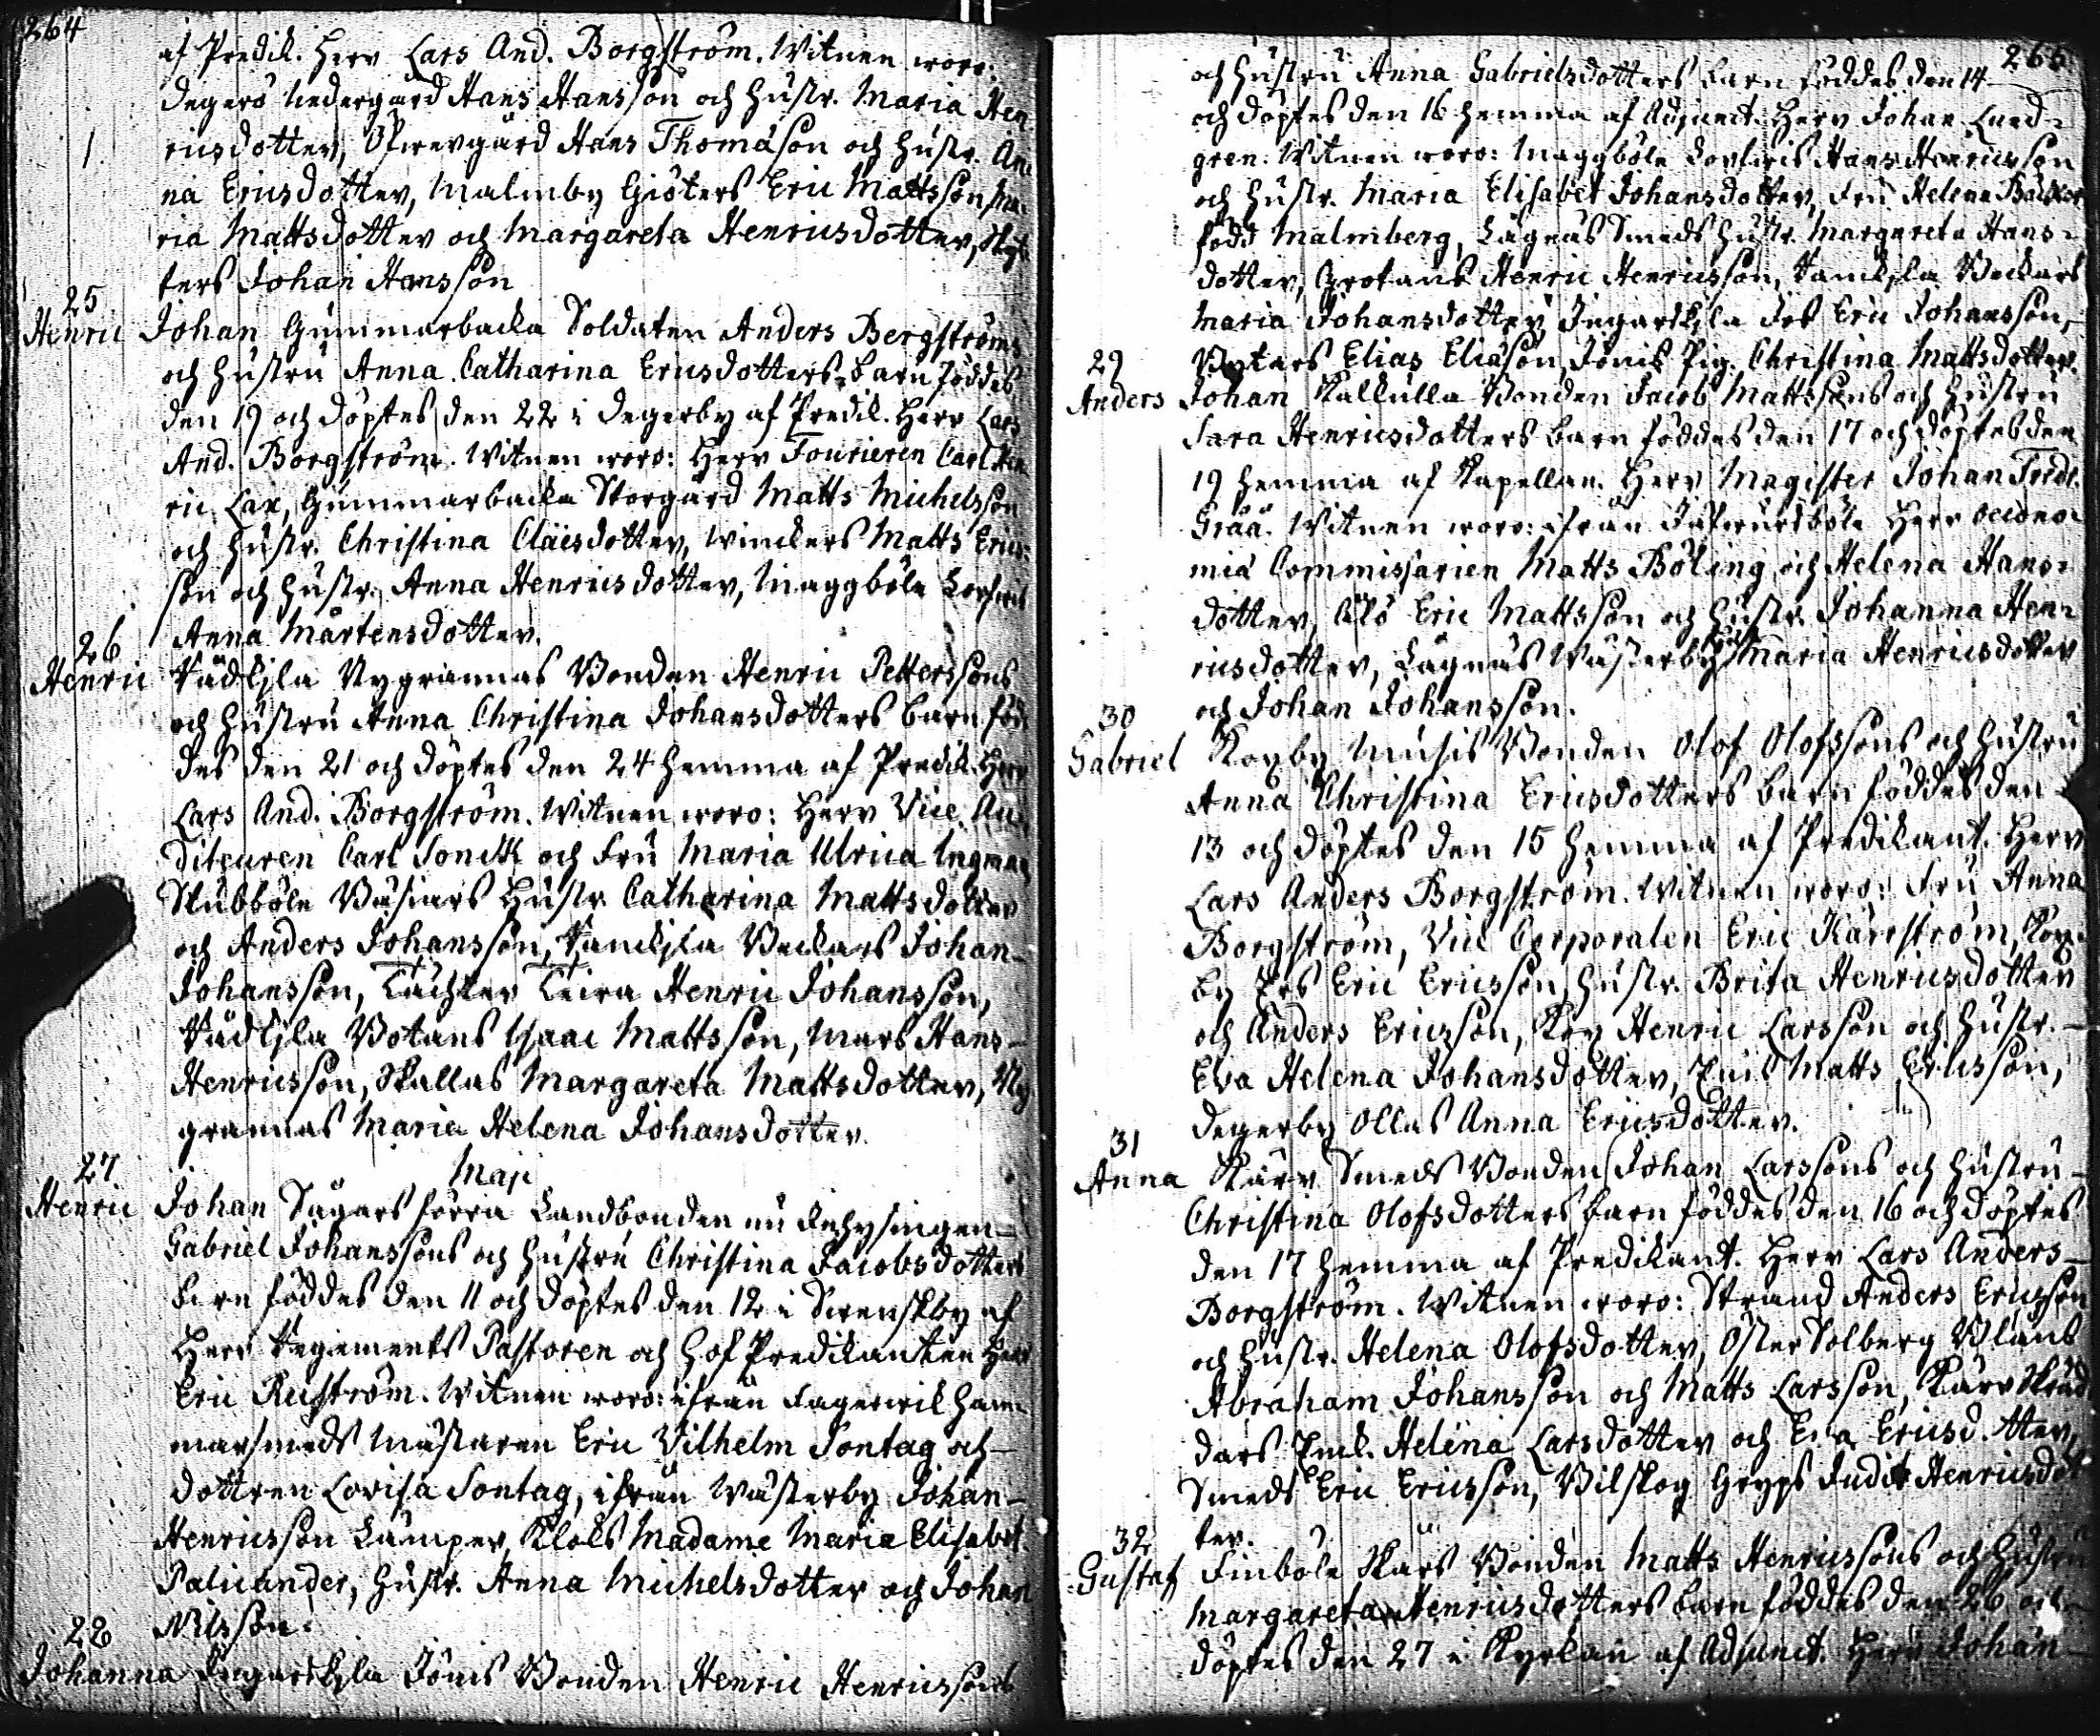 264
af Predik. Herr Lars And. Borgström. Witnen woro:
Degerö Nedergård Hans Hansson och Hustr. Maria Hen
ricsdotter, Öfwergård Hans Thomason och Hustr. An
na Ericsdotter, Malmby Giöters Eric Mattsson, Ma-
ria Mattsdotter och Margareta Henricsdotter,
ters Johan Hansson
25
Henric Johan Gummarbacka Soldaten Anders Bergströms
och Hustru Anna Catharina Ericsdotters barn föddes
den 19 och döptes den 22 i Degerby af Predik. Herr Lars
And. Borgström. Witnen woro: Herr Fourieren Carl Hen
ric Lax, Gummarbacka Storgård Matts Michelsson
och Hustr. Christina Claësdotter, Winckers Matts Erics-
son och Hustr. Anna Henricsdotter, Maggböle
Anna Mårtensdotter.
26
Henric Rådkjla Nygrannas Bonden Henric Petterssons
och Hustru Anna Christina Johansdotters barn föd
des den 21 och döptes den 24 hemma af Predik. Herr
Lars And. Borgström. Witnen woro: Herr Vice Au
diteuren Carl Sonck och Fru Maria Ulrica Ingman
Skubböle Hustr. Catharina Mattsdotter
och Anders Johansson, Beckars Johan
Johansson, Henric Johansson,
Rådkjla Botans Isaac Mattsson, Mars Hans
Henricsson, Skallas Margareta Mattsdotter, Ny
grannas Maria Helena Johansdotter.
Maji
27
Henric Johan Sågars förra Landbonden nu Inhysingen
Gabriel Johanssons och Hustru Christina Jacobsdotters
barn föddes den 11 och döptes den 12 i Svenskby af
Herr Regements Pastoren och Hof Predikanten Herr
Eric Ruström. Witnen woro: ifrån Fagerwik Ham
marsmeds Mästaren Eric Vilhelm Sontag och
dottren Lovisa Sontag, ifrån Wästerby Johan
Henricsson Lämper, Madame Maria Elisabet
Palicander, Hustr. Anna Michelsdotter och Johan
Nilsson.
28
Johanna Ingarskjla Jönis Bonden Henric Henricssons
265
och Hustru Anna Gabrielsdotters barn föddes den 14
och döptes den 16 hemma af Adjunct. Herr Johan Lund-
gren. Witnen woro: Maggböle Hans Henricsson
och Hustr. Maria Elisabet Johansdotter, Fru Helena
född Malmberg, Lågnäs Smeds Hustr. Margareta Hans-
dotter, Grotans Henric Henricsson, Beckars
Maria Johansdotter, Ingarskjla Eric Johansson,
Elias Eliason, Jönis Pig. Christina Mattsdotter.
29
Anders Johan Kallkulla Bonden Jacob Mattssons och Hustru
Sara Henricsdotters barn föddes den 17 och döptes den
19 hemma af Kapellan. Herr Magister Johan Fredr.
Gråå. Witnen woro: ifrån Herr Oecono-
mië Commissarien Matts Böling och Helena Hans-
dotter, Eric Mattsson och Hustr. Johanna Hen-
ricsdotter, Lågnäs Wästerby Maria Henricsdotter
och Johan Johansson.
30
Gabriel Koxby Musis Bonden Olof Olofssons och Hustru
Anna Christina Ericsdotters barn föddes den
13 och döptes den 15 hemma af Predikant. Herr
Lars Anders Borgström. Witnen woro: Fru Anna
Borgström, Vice Corporalen Eric Kärrström, Kox-
by Ers Eric Ericsson, Hustr. Brita Henricsdotter
och Anders Ericsson, Kox Henric Larsson och Hustr.
Eva Helena Johansdotter, Matts Ericsson,
Degerby Ollas Anna Ericsdotter.
31
Anna Kärr Smeds Bonden Johan Larssons och Hustru
Christina Olofsdotters barn föddes den 16 och döptes
den 17 hemma af Predikant. Herr Lars Anders
Borgström. Witnen woro: Strand Anders Ericsson
och Hustr. Helena Olofsdotter, Öster Solberg
Abraham Johansson och Matts Larsson, Kärr Skräd
dars Enk. Helena Larsdotter och Eva Ericsdotter,
Smeds Eric Ericsson, Bilskog Gryps Judit Henricsdot
ter.
32
Gustaf Finböle Skars Bonden Matts Henricssons och Hustru
Margareta Henricsdotters barn föddes den 26 och
döptes den 27 i Kyrkan af Adjunct. Herr Johan